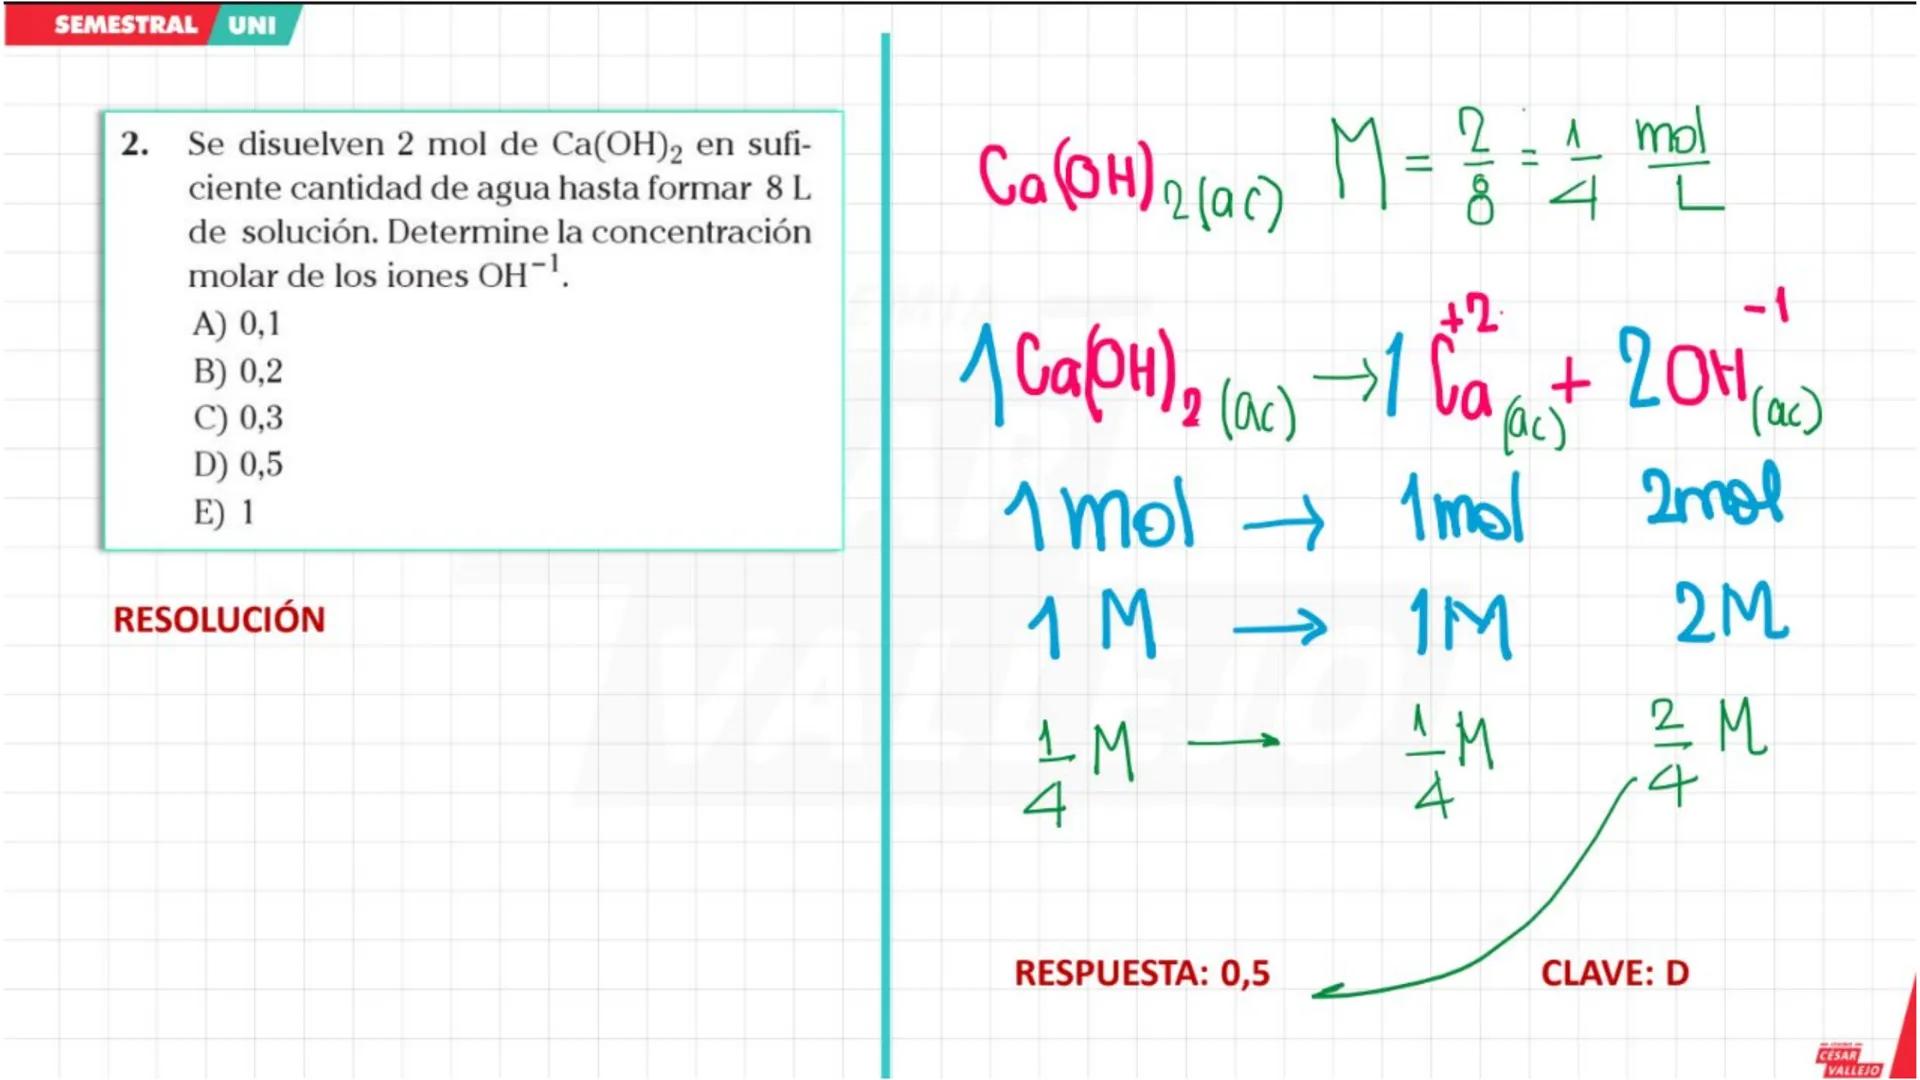 SEMESTRAL UNI
2. Se disuelven 2 mol de Ca(OH)₂ en sufi-
ciente cantidad de agua hasta formar 8 L
de solución. Determine la concentración
molar de los iones OH⁻¹.
A) 0,1
B) 0,2
C) 0,3
D) 0,5
E) 1
RESOLUCIÓN
Ca(OH)₂(ac) M = 2/8 = 1/4 mol/L
1 Ca(OH)₂(ac) → 1 Ca⁺²(ac) + 2 OH⁻¹(ac)
1 mol → 1 mol 2 mol
1 M → 1 M 2 M
1/4 M → 1/4 M 2/4 M
RESPUESTA: 0,5 CLAVE: D
CÉSAR
VALLEJO